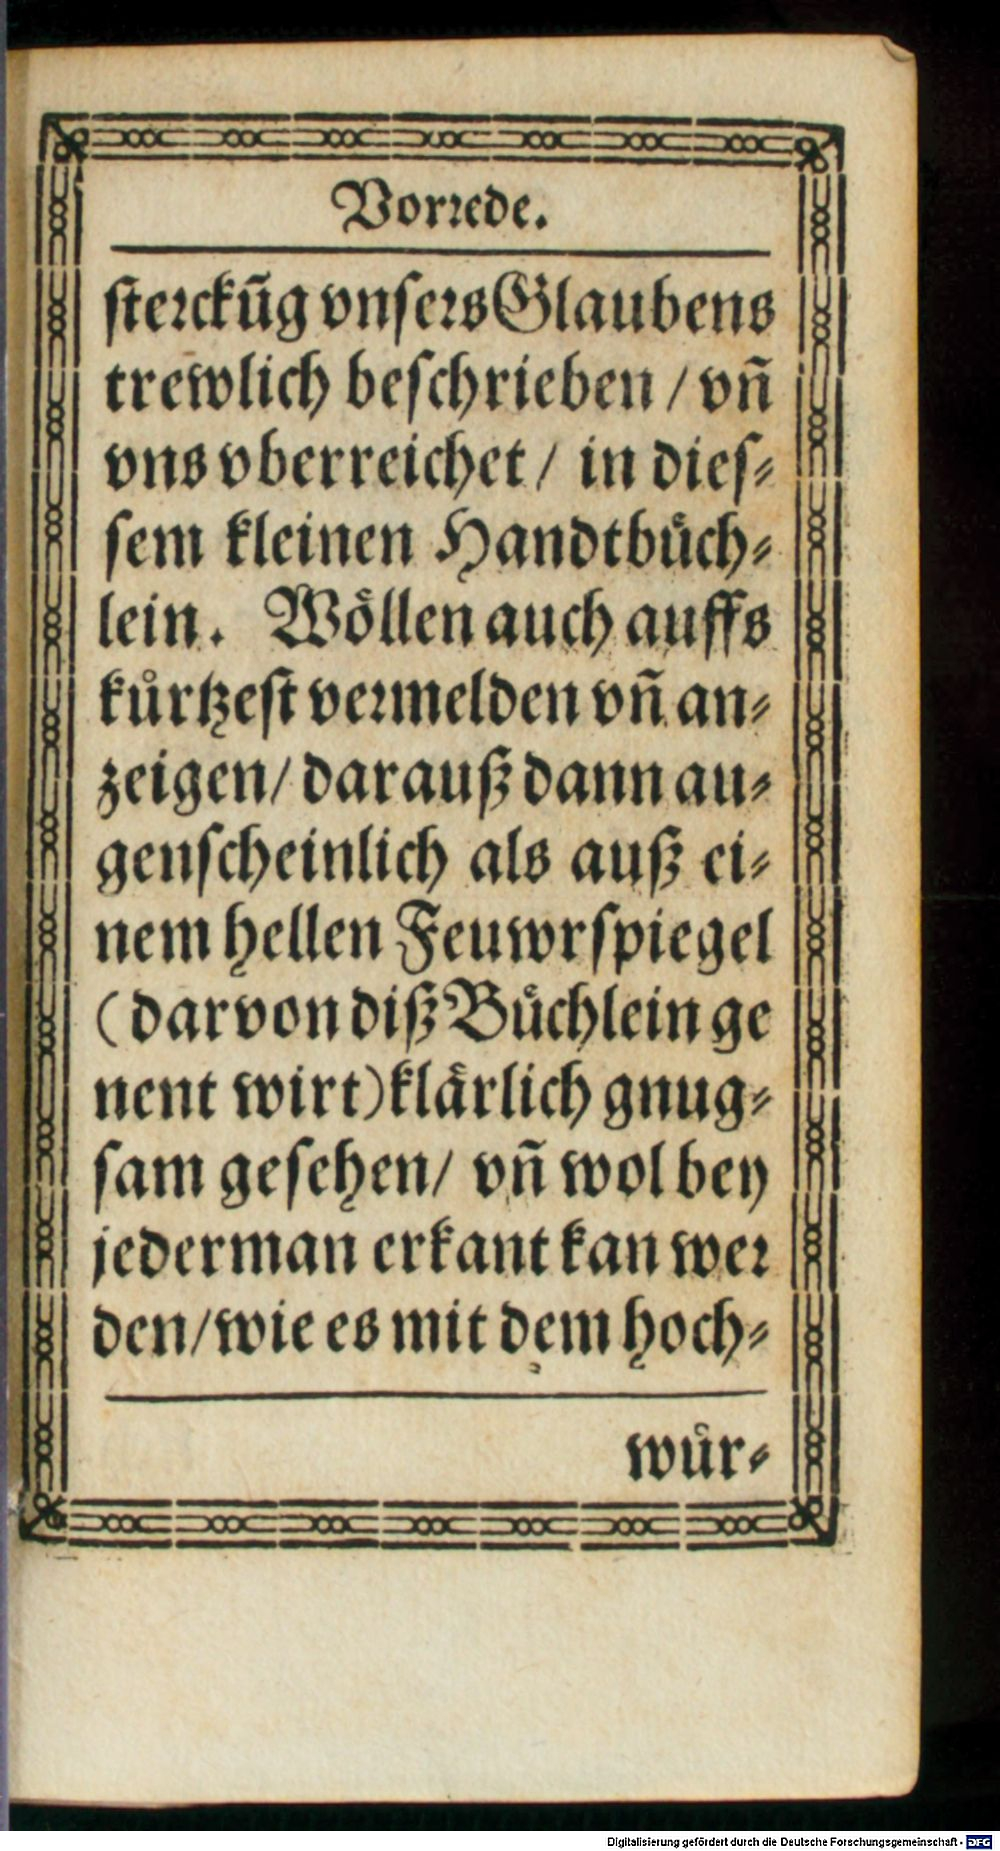 Vorꝛede.
ſteꝛckũg vnſeꝛs Glaubens
trewlich beſchrieben / vñ
vns vberreichet / in dieſ⸗
ſem kleinen Handtbuͤch⸗
lein. Woͤllen auch auffs
kuͤrtzeſt veꝛmelden vñ an⸗
zeigen / darauß dann au⸗
genſcheinlich als auß ei⸗
nem hellen Feuwrſpiegel
(darvon diß Buͤchlein ge
nent wirt) klaͤrlich gnug⸗
ſam geſehen / vñ wol bey
jederman erkant kan weꝛ
den / wie es mit dem hoch⸗
wuͤr⸗
Digitalisierung gefördert durch die Deutsche Forschungsgemeinschaft - DFG